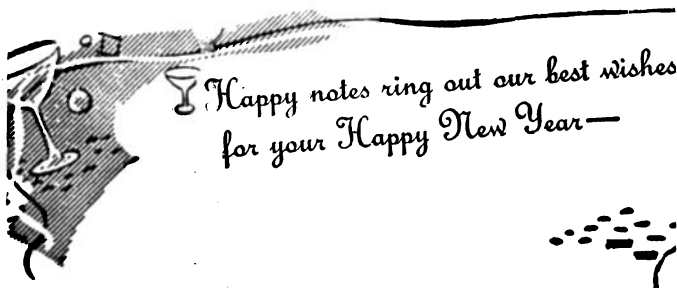 Happy notes ring out our best wishes
for your Happy New Year—